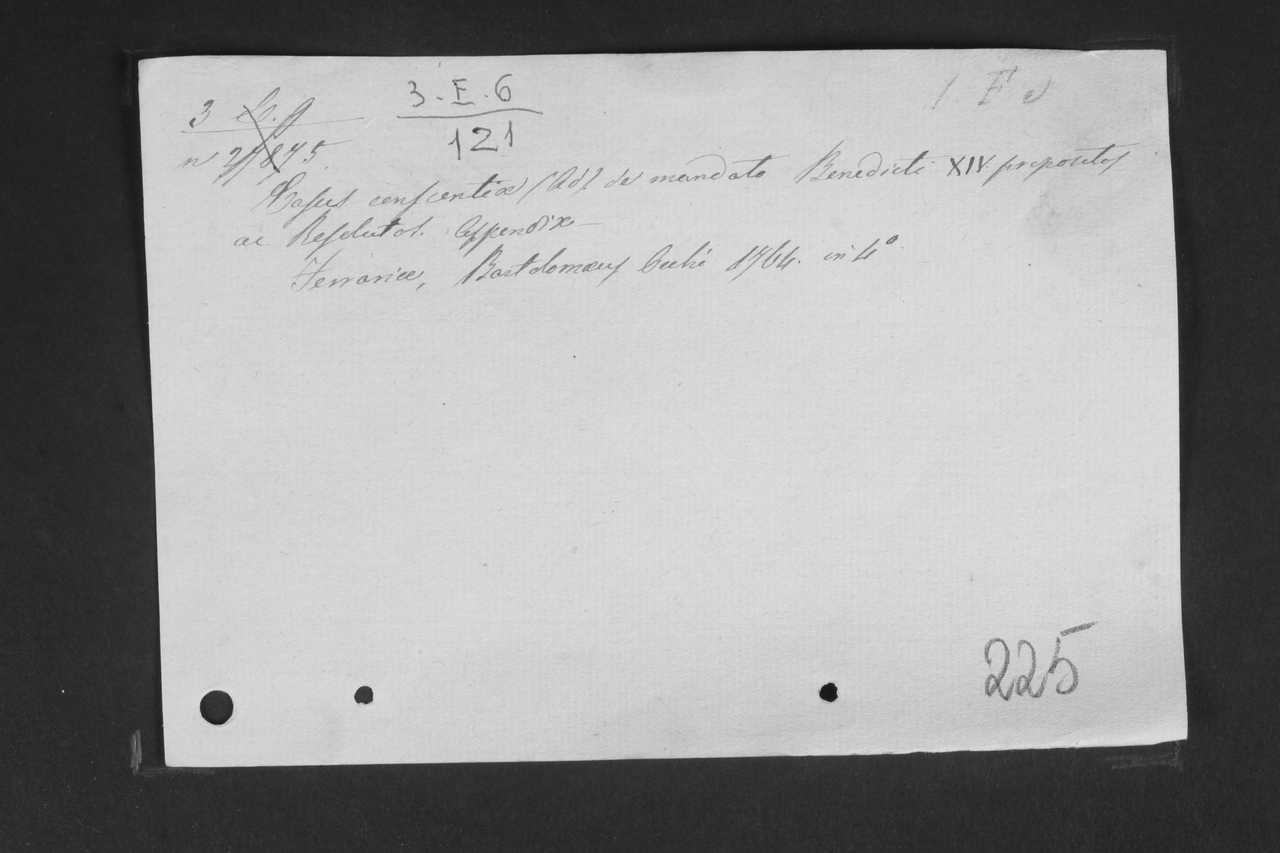 3. E. 6
121
3
n
Casus conscientiæ (Ad) de mandato Benedicti XIV. propositos
ac Resolutos. Appendix —
Ferrariæ, Bartolomæus 1764. in 4°.
225